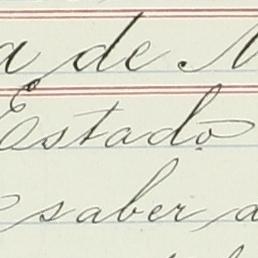 a de
Estado
saber a